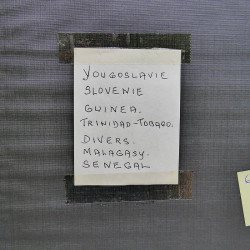 YOUGOSLAVIE
SLOVENIE
GUINEA.
TRINIDAD-TOBAGO.
DIVERS.
MALAGASY.
SENEGAL